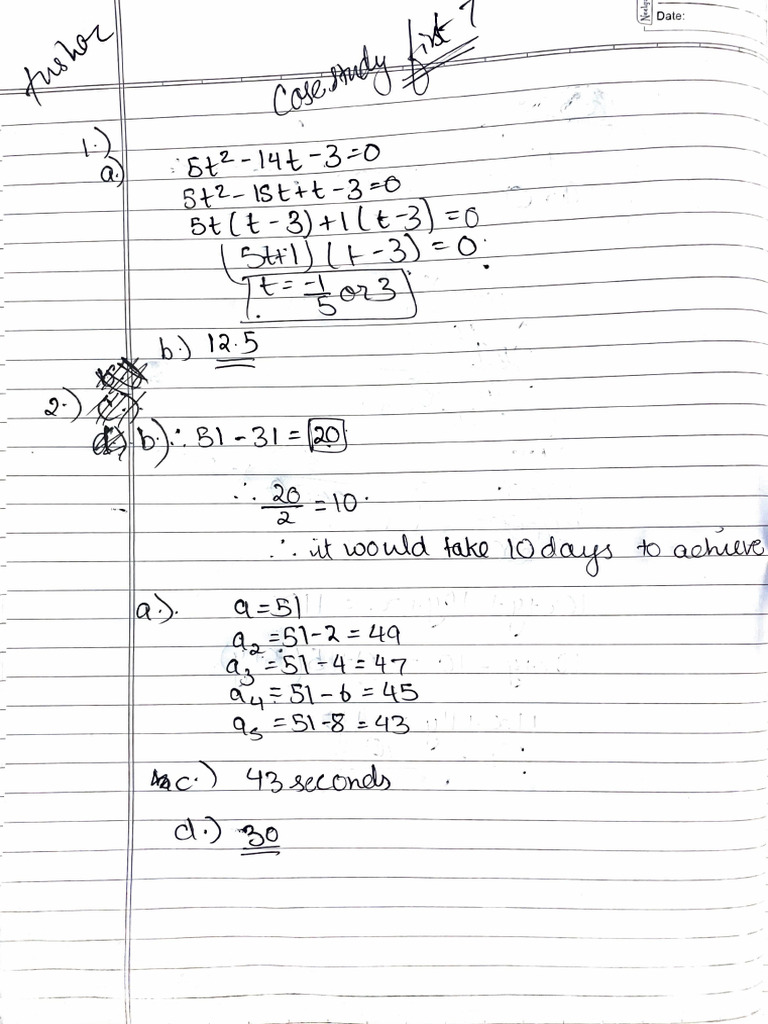 Date:
Case study first ?
1.)
a.) 5t² - 14t - 3 = 0
5t² - 15t + t - 3 = 0
5t (t - 3) + 1 (t - 3) = 0
(5t+1) (t - 3) = 0
t = -1/5 or 3
b.) 12.5
2.)
b.) ∴ 51 - 31 = 20
∴ 20/2 = 10
∴ it would take 10 days to achieve
a.) a = 51
a₂ = 51 - 2 = 49
a₃ = 51 - 4 = 47
a₄ = 51 - 6 = 45
a₅ = 51 - 8 = 43
c.) 43 seconds
d.) 30